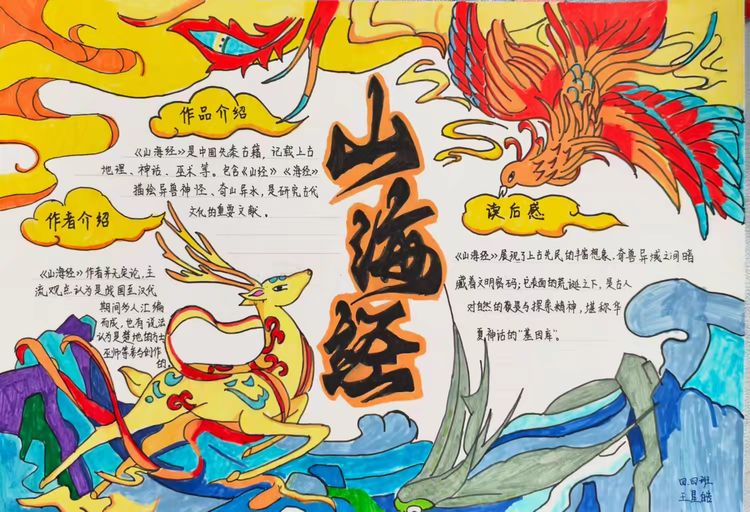 山海经
作品介绍
《山海经》是中国先秦古籍，记载上古
地理、神话、巫术等。包含《山经》《海经》
描绘异兽神怪、奇山异水，是研究古代
文化的重要文献。
作者介绍
《山海经》作者并无定论，主
流观点认为是战国至汉代
期间多人汇编
而成，也有说法
认为是楚地的方士
巫师等参与创作
的
读后感
《山海经》展现了上古先民的丰富想象，奇兽异域之间暗
藏着文明密码；它表面的荒诞之下，是古人
对自然的敬畏与探索精神，堪称华
夏神话的“基因库”。
四.四班
王星皓